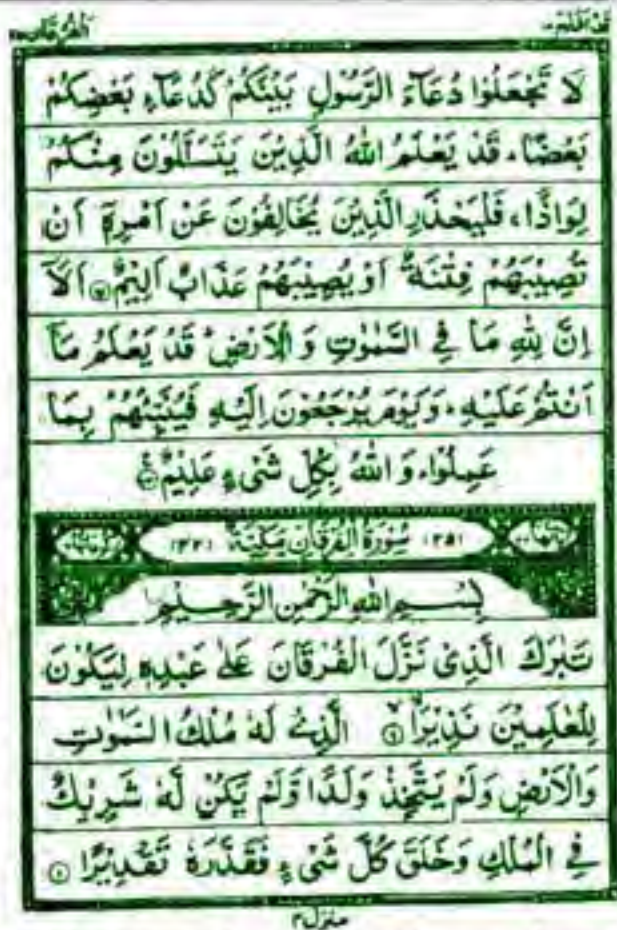 الفرقان ٢٥
قد افلح ١٨
لَا تَجْعَلُوْا دُعَآءَ الرَّسُوْلِ بَيْنَكُمْ كَدُعَآءِ بَعْضِكُمْ
بَعْضًا ؕ قَدْ يَعْلَمُ اللّٰهُ الَّذِيْنَ يَتَسَلَّلُوْنَ مِنْكُمْ
لِوَاذًا ۚ فَلْيَحْذَرِ الَّذِيْنَ يُخَالِفُوْنَ عَنْ اَمْرِهٖۤ اَنْ
تُصِيْبَهُمْ فِتْنَةٌ اَوْ يُصِيْبَهُمْ عَذَابٌ اَلِيْمٌ اَلَاۤ
اِنَّ لِلّٰهِ مَا فِي السَّمٰوٰتِ وَالْاَرْضِ ؕ قَدْ يَعْلَمُ مَاۤ
اَنْتُمْ عَلَيْهِ ؕ وَيَوْمَ يُرْجَعُوْنَ اِلَيْهِ فَيُنَبِّئُهُمْ بِمَا
عَمِلُوْا ؕ وَاللّٰهُ بِكُلِّ شَيْءٍ عَلِيْمٌ
(٢٥) سُوْرَةُ الْفُرْقَانِ مَكِّيَّةٌ (٤٢)
بِسْمِ اللّٰهِ الرَّحْمٰنِ الرَّحِيْمِ
تَبٰرَكَ الَّذِيْ نَزَّلَ الْفُرْقَانَ عَلٰى عَبْدِهٖ لِيَكُوْنَ
لِلْعٰلَمِيْنَ نَذِيْرًا ۙ ١ الَّذِيْ لَهٗ مُلْكُ السَّمٰوٰتِ
وَالْاَرْضِ وَلَمْ يَتَّخِذْ وَلَدًا وَّلَمْ يَكُنْ لَّهٗ شَرِيْكٌ
فِي الْمُلْكِ وَخَلَقَ كُلَّ شَيْءٍ فَقَدَّرَهٗ تَقْدِيْرًا
منزل ٤